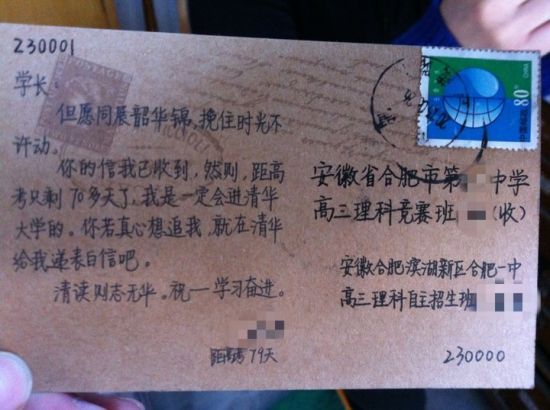 230001
学长:
但愿同展韶华锦,挽住时光不
许动。
你的信我已收到,然则,距高
考只剩70多天了,我是一定会进清华
大学的。你若真心想追我,就在清华
给我递表白信吧。
清读则志无华。祝——学习奋进。
距高考79天
80分
安徽省合肥市第 中学
高三理科竞赛班 (收)
安徽合肥滨湖新区合肥一中
高三理科自主招生班
230000